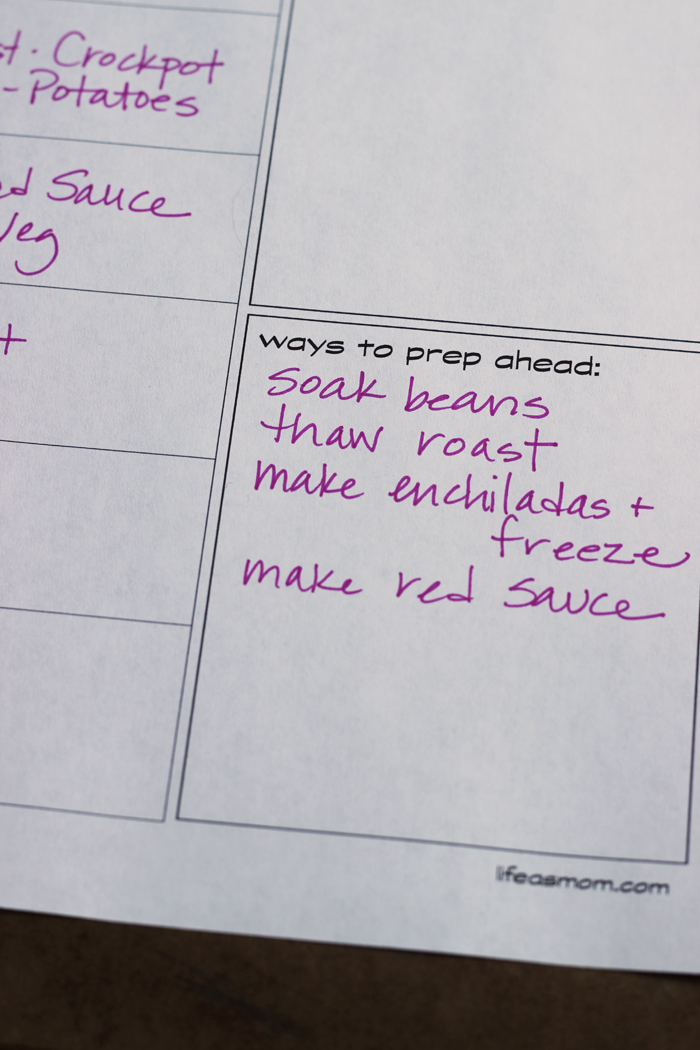 · Crockpot
- Potatoes
Sauce
Veg
+
ways to prep ahead:
soak beans
thaw roast
make enchiladas +
freeze
make red sauce
lifeasmom.com